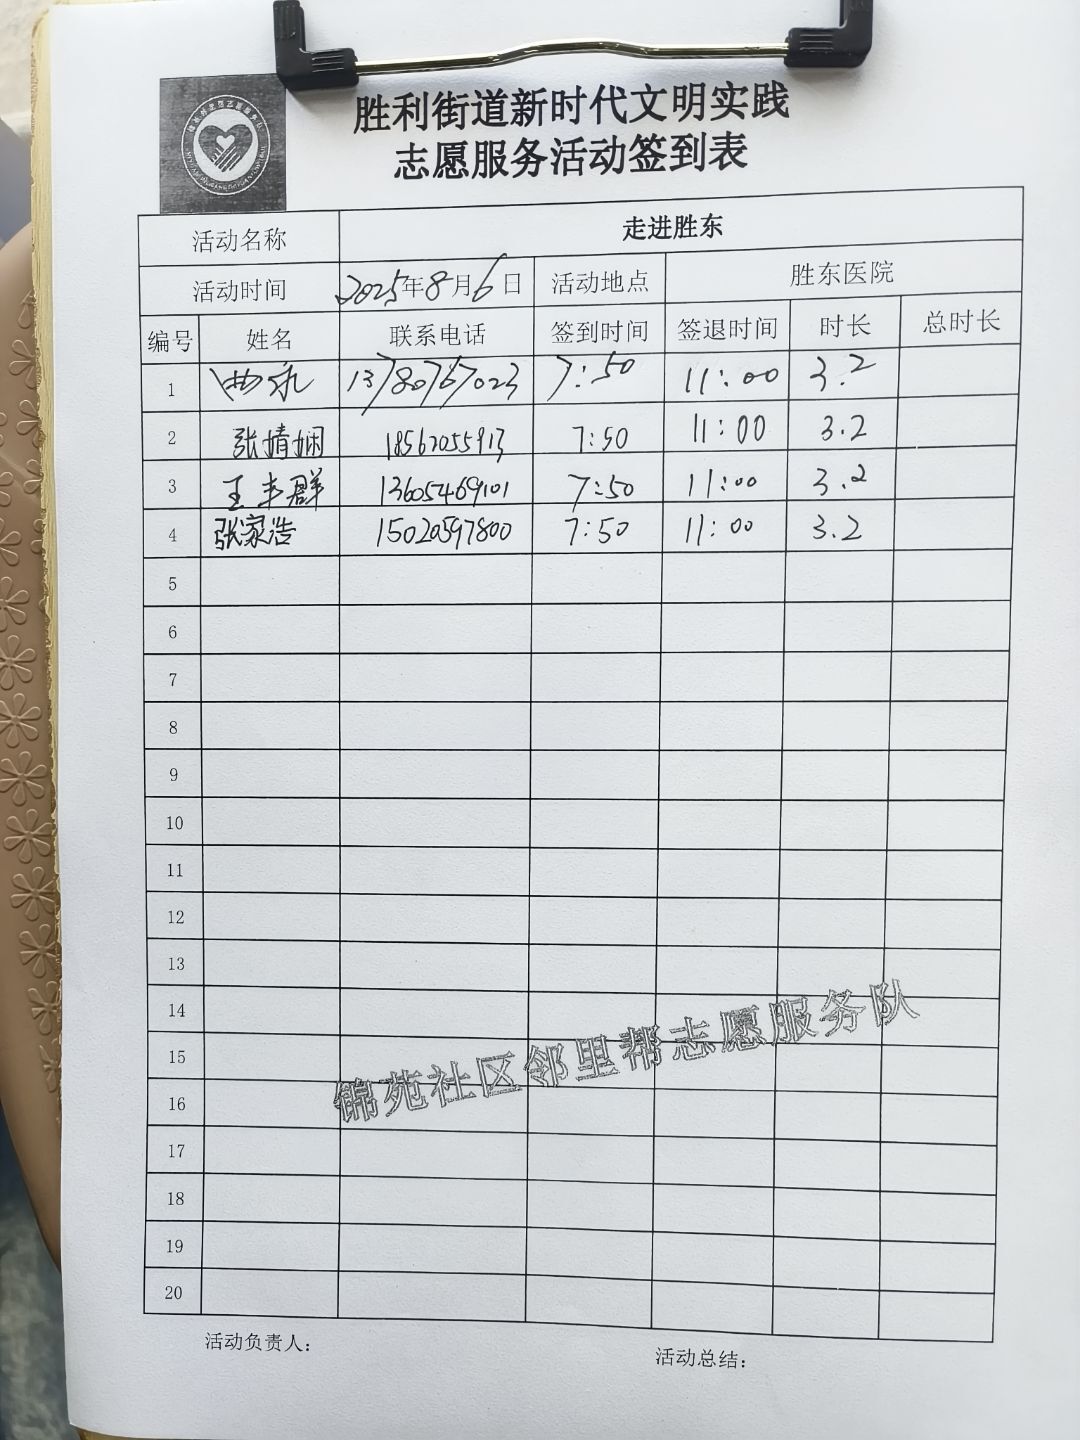 胜利街道新时代文明实践
志愿服务活动签到表
活动名称 走进胜东
活动时间 2025年8月6日 活动地点 胜东医院
编号 姓名 联系电话 签到时间 签退时间 时长 总时长
1 曲永 13780767023 7:50 11:00 3.2
2 张婧娴 18562055913 7:50 11:00 3.2
3 王丰群 13605469101 7:50 11:00 3.2
4 张家浩 15020597800 7:50 11:00 3.2
5
6
7
8
9
10
11
12
13
14
15
16
17
18
19
20
锦苑社区邻里帮志愿服务队
活动负责人：
活动总结：